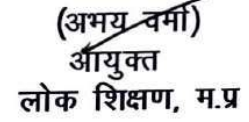 (अभय वर्मा)
आयुक्त
लोक शिक्षण, म.प्र